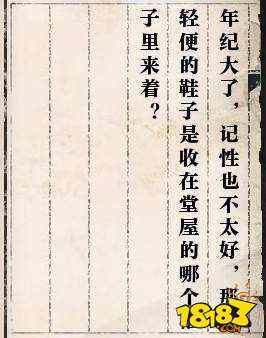 年纪大了，记性也不太好，那
轻便的鞋子是收在堂屋的哪个
子里来着？
18183